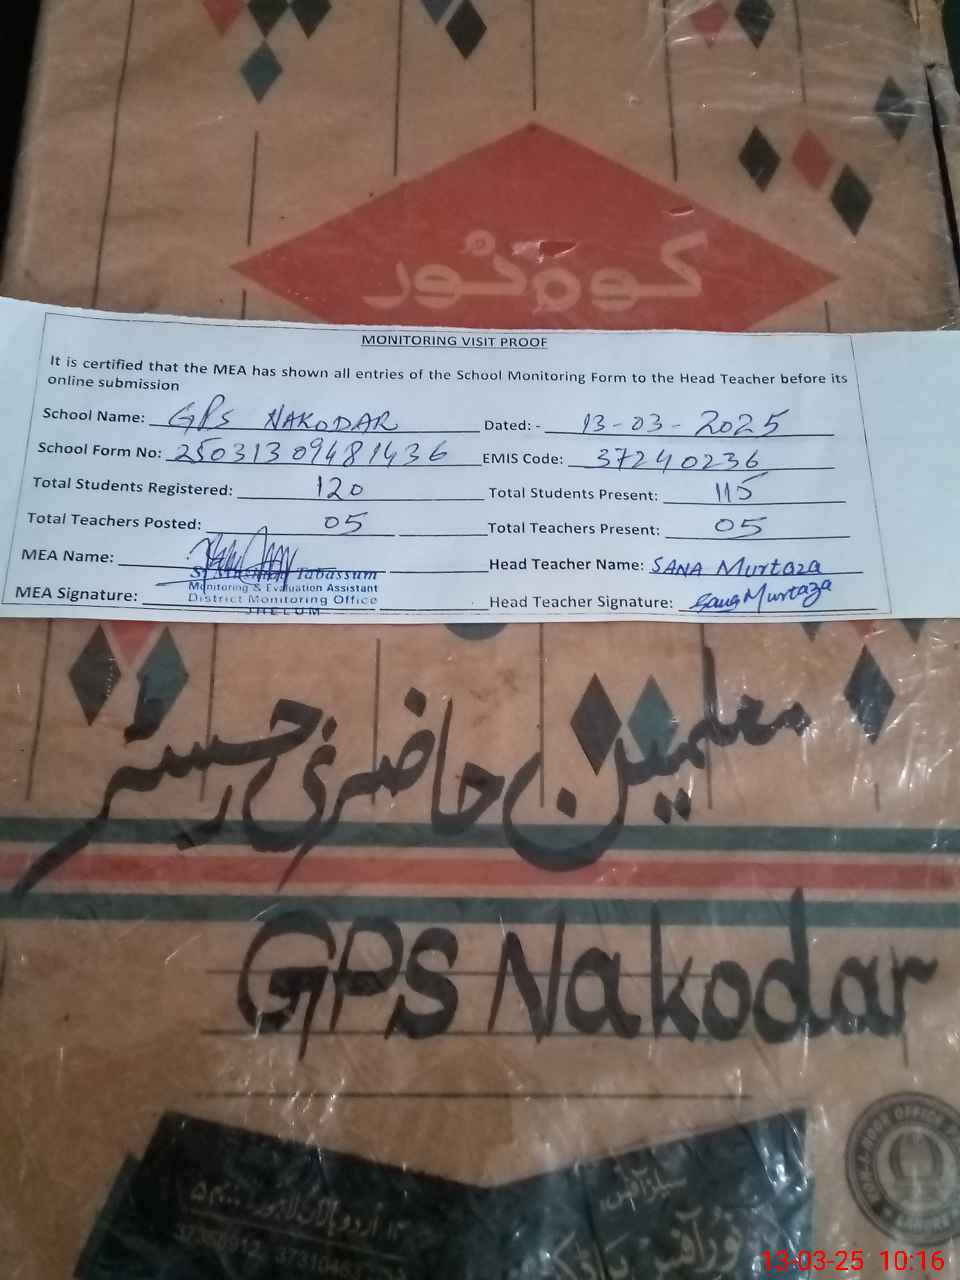 کوہ نور
MONITORING VISIT PROOF
It is certified that the MEA has shown all entries of the School Monitoring Form to the Head Teacher before its
online submission
School Name: GPS NAKODAR Dated: - 13-03-2025
School Form No: 25031309481436 EMIS Code: 37240236
Total Students Registered: 120 Total Students Present: 115
Total Teachers Posted: 05 Total Teachers Present: 05
MEA Name: Head Teacher Name: SANA Murtaza
Tabassum
Monitoring & Evaluation Assistant
MEA Signature: District Monitoring Office Head Teacher Signature: Sana Murtaza
JHELUM
معلمین حاضری رجسٹر
GPS Nakodar
سیلز آفس:
اردو بازار لاہور
13-03-25 10:16